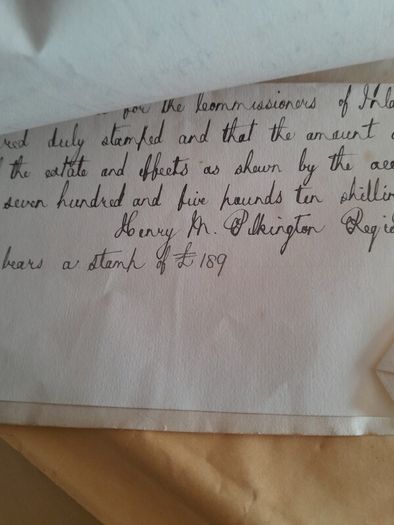 for the Commissioners of Inla
red duly stamped and that the amount
the estate and effects as shewn by the
seven hundred and five pounds ten shillin
Henry M. Pilkington Regis
bears a stamp of £189